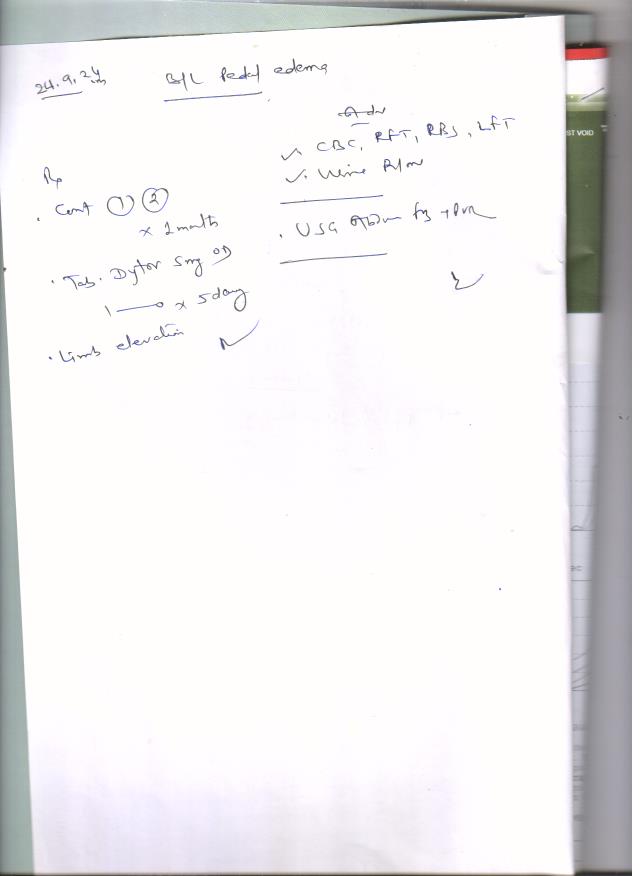 24.9.24
B/L Pedal edema
Adv
CBC, RFT, RBS, LFT
Urine R/m
USG Abdomen + PVR
Rx
Cont ① ②
x 1 month
Tab. Dytor 5mg OD
1 — x 5 day
Limb elevation
ST VOID